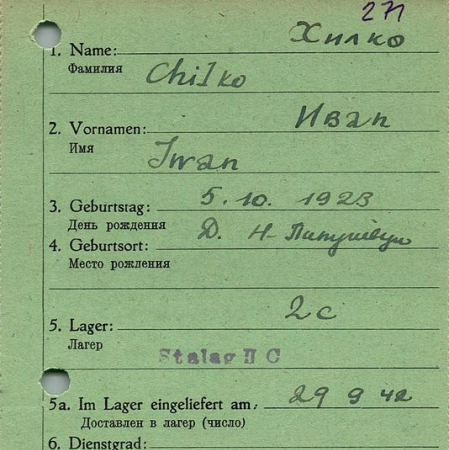 271
Хилко
1. Name:
Фамилия Chilko
Иван
2. Vornamen:
Имя Iwan
3. Geburtstag: 5. 10. 1923
День рождения
4. Geburtsort: Д. Н-
Место рождения
2c
5. Lager:
Лагер
Stalag II C
5a. Im Lager eingeliefert am: 29 9 42
Доставлен в лагер (число)
6. Dienstgrad: